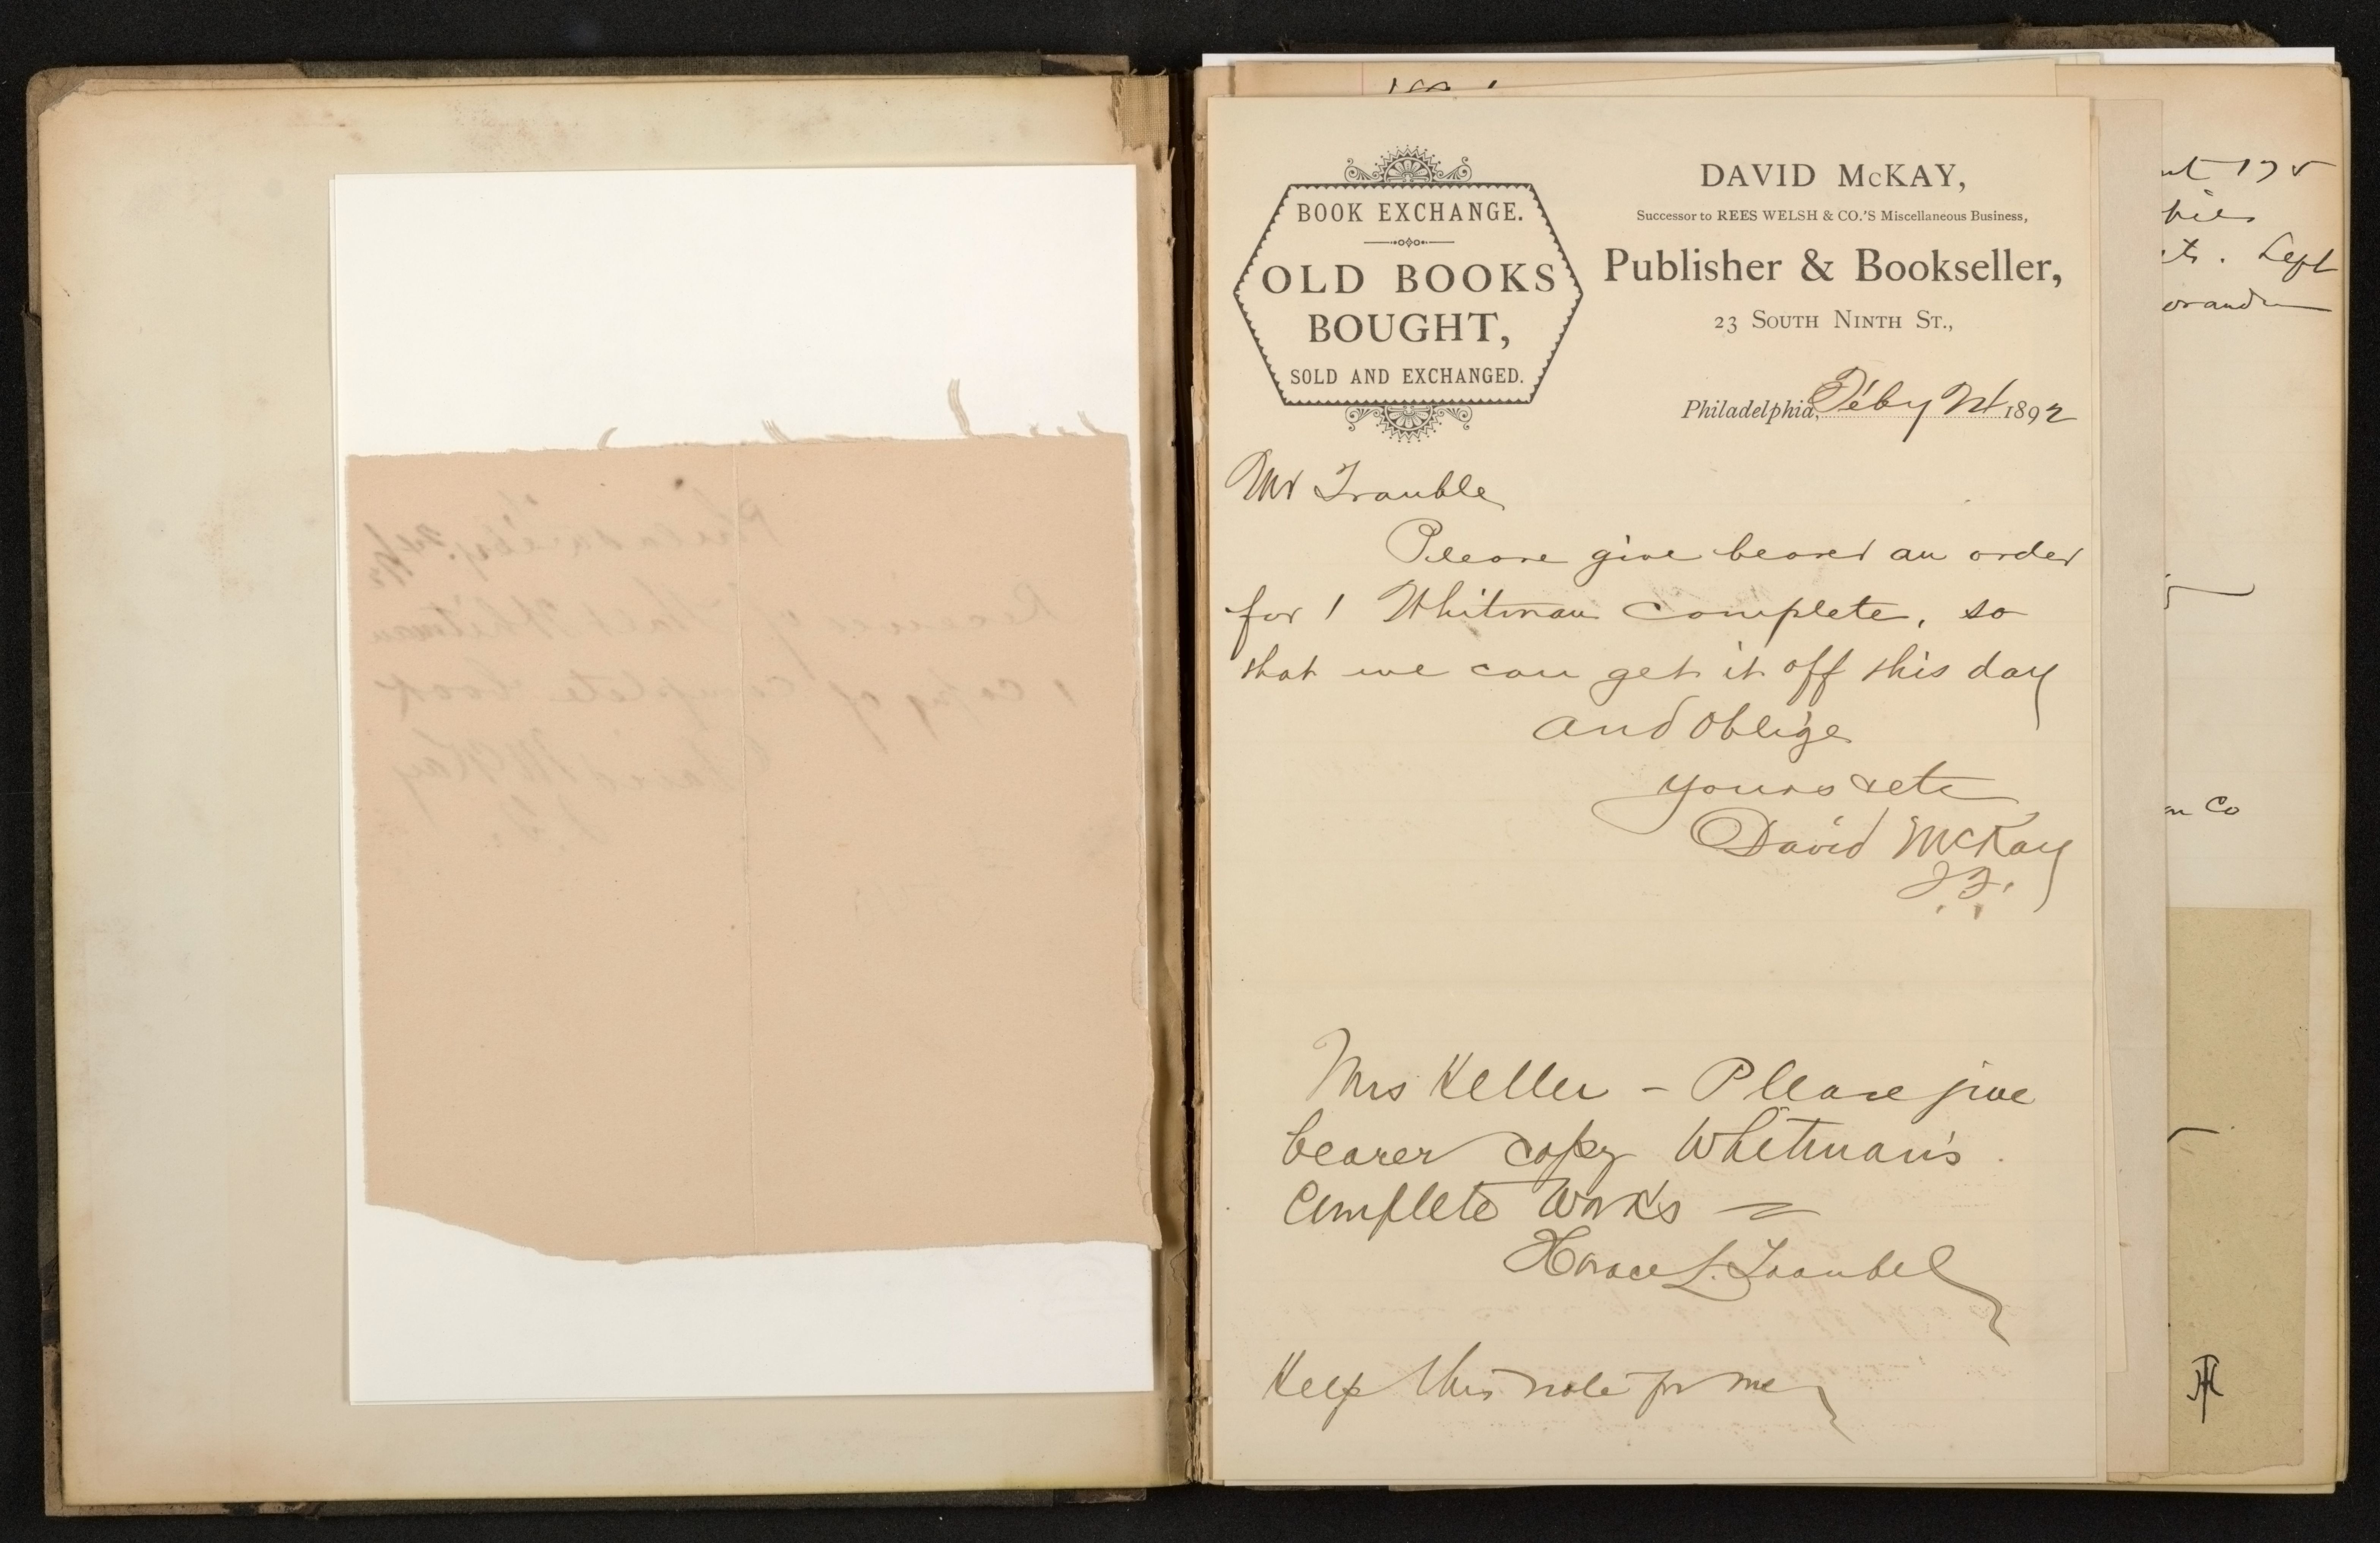 BOOK EXCHANGE.
OLD BOOKS
BOUGHT,
SOLD AND EXCHANGED.
DAVID McKAY,
Successor to REES WELSH & CO.'S Miscellaneous Business,
Publisher & Bookseller,
23 SOUTH NINTH ST.,
Philadelphia, Feby 1892
Mr Trauble
Please give bearer an order
for 1 Whitman complete, so
that we can get it off this day
and oblige
yours &etc
David McKay
J.F.
Mrs Keller - Please give
bearer copy Whitman's
Complete Works
Horace L. Traubel
Keep this note for me
Received of Walt Whitman
1 copy of complete book
David McKay
Left
Co